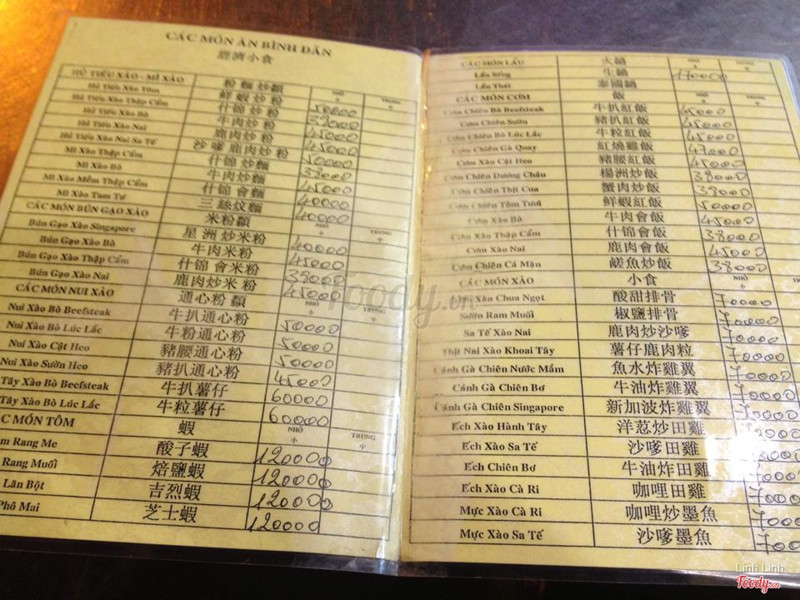 CÁC MÓN ĂN BÌNH DÂN
經濟小食
HỦ TIẾU XÀO - MÌ XÀO 粉 麵 炒 類 NHỎ 小 TRUNG 中
Hủ Tiếu Xào Tôm 鮮 蝦 炒 粉 50000
Hủ Tiếu Xào Thập Cẩm 什錦 炒 粉 38000
Hủ Tiếu Xào Bò 牛肉 炒 粉 45000
Hủ Tiếu Xào Nai 鹿肉 炒粉 45000
Hủ Tiếu Xào Nai Sa Tế 沙 嗲 鹿肉 炒粉 50000
Mì Xào Thập Cẩm 什錦 炒 麵 38000
Mì Xào Bò 牛肉 炒 麵 45000
Mì Xào Mềm Thập Cẩm 什錦 會 麵 40000
Mì Xào Tam Tơ 三絲炆麵 40000
CÁC MÓN BÚN GẠO XÀO 米粉類 NHỎ 小 TRUNG 中
Bún Gạo Xào Singapore 星洲 炒 米粉 40000
Bún Gạo Xào Bò 牛肉 米粉 40000
Bún Gạo Xào Thập Cẩm 什錦 會 米粉 38000
Bún Gạo Xào Nai 鹿肉 炒 米粉 45000
CÁC MÓN NUI XÀO 通心粉 類 NHỎ 小 TRUNG 中
Nui Xào Bò Beefsteak 牛扒通心粉 50000
Nui Xào Bò Lúc Lắc 牛粉通心粉 50000
Nui Xào Cật Heo 豬腰通心粉 50000
Nui Xào Sườn Heo 豬扒通心粉 45000
Tây Xào Bò Beefsteak 牛扒薯仔 60000
Tây Xào Bò Lúc Lắc 牛粒薯仔 60000
C MÓN TÔM 蝦 NHỎ 小 TRUNG 中
m Rang Me 酸子蝦 120000
Rang Muối 焙鹽蝦 120000
Lăn Bột 吉烈蝦 120000
Phô Mai 芝士蝦 120000
CÁC MÓN LẨU 火鍋
Lẩu Sống 生鍋 170000
Lẩu Thái 泰國鍋
CÁC MÓN CƠM 飯 NHỎ 小 TRUNG 中
Cơm Chiên Bò Beefsteak 牛扒紅飯 45000
Cơm Chiên Sườn 豬扒紅飯 45000
Cơm Chiên Bò Lúc Lắc 牛粒紅飯 45000
Cơm Chiên Gà Quay 紅燒雞飯
Cơm Xào Cật Heo 豬腰紅飯 45000
Cơm Chiên Dương Châu 楊洲炒飯 38000
Cơm Chiên Thịt Cua 蟹肉炒飯 38000
Cơm Chiên Tôm Tươi 鮮蝦紅飯 50000
Cơm Xào Bò 牛肉會飯 45000
Cơm Xào Thập Cẩm 什錦會飯 38000
Cơm Xào Nai 鹿肉會飯 45000
Cơm Chiên Cá Mặn 鹹魚炒飯 38000
CÁC MÓN XÀO 小食 NHỎ 小 TRUNG 中
Xào Chua Ngọt 酸甜排骨 70000
Sườn Ram Muối 椒鹽排骨 70000
Sa Tế Xào Nai 鹿肉炒沙嗲 70000
Thịt Nai Xào Khoai Tây 薯仔鹿肉粒 70000
Cánh Gà Chiên Nước Mắm 魚水炸雞翼 70000
Cánh Gà Chiên Bơ 牛油炸雞翼 70000
Cánh Gà Chiên Singapore 新加波炸雞翼 70000
Ếch Xào Hành Tây 洋葱炒田雞 70000
Ếch Xào Sa Tế 沙嗲田雞 70000
Ếch Chiên Bơ 牛油炸田雞 70000
Ếch Xào Cà Ri 咖哩田雞 70000
Mực Xào Cà Ri 咖哩炒墨魚 70000
Mực Xào Sa Tế 沙嗲墨魚 70000
Foody.vn
Linh Linh
Foody.vn